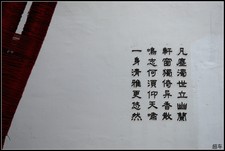 凡塵濁世立幽蘭
軒窗獨倚昇香散
鳴志何須仰天嘯
一身清雅更悠然